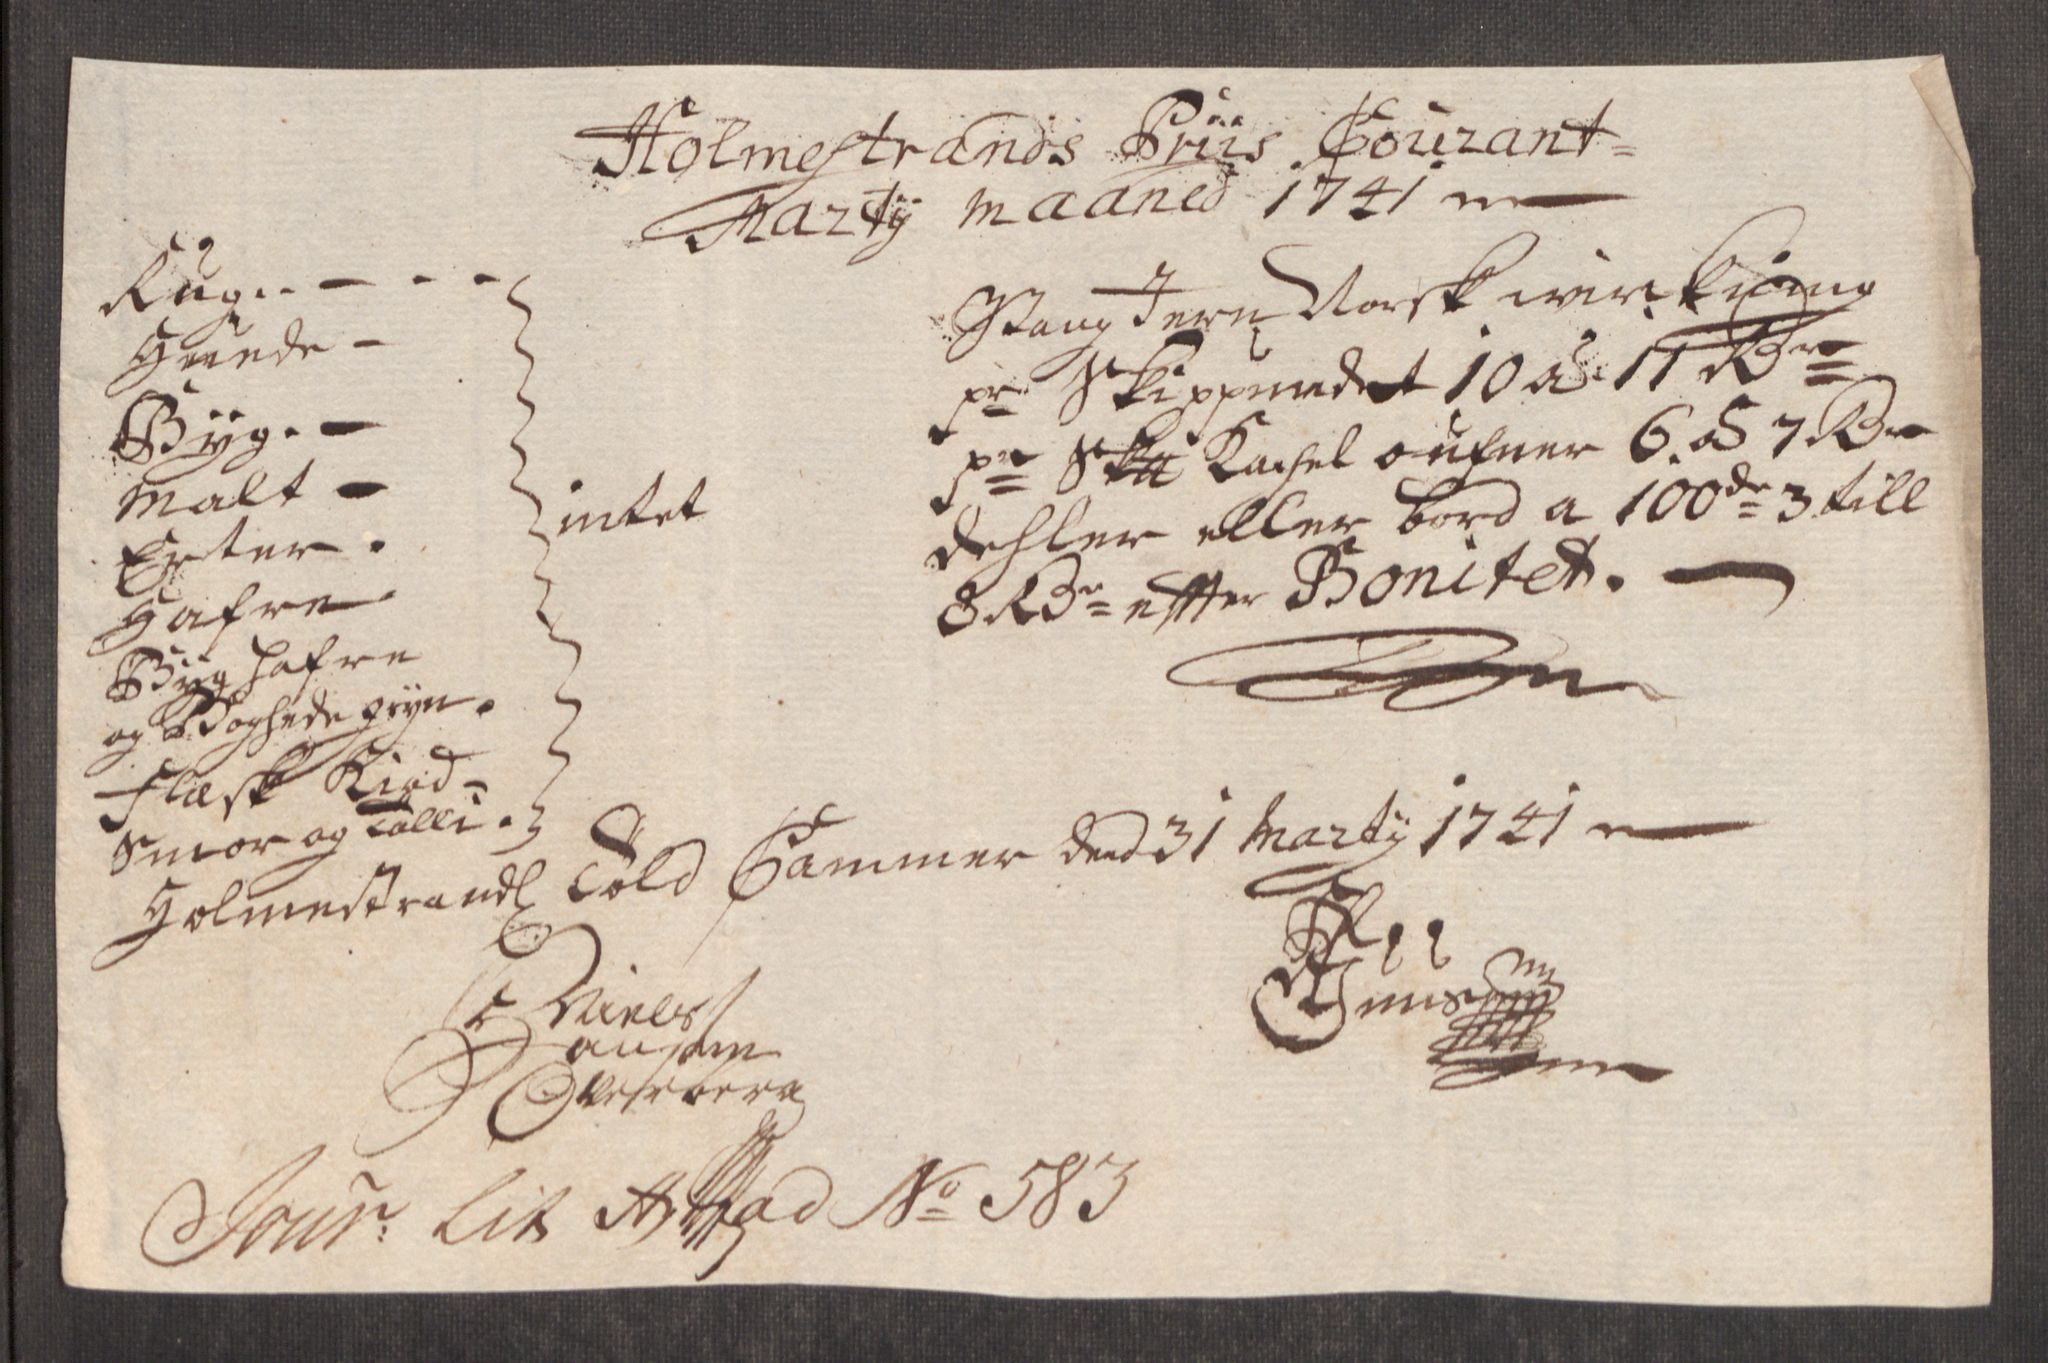 Holmestrands Priis Courant
Marty maaned 1741
Rug
Hvede
Byg
Malt
Erter
Hafre
Byg hafre
og Boghede gryn
Flæsk Kiød
Smør og Talli
intet
Stang Jern Norsk wirkning
pr Skippundet 10 à 11 Rdr
pr Sk℔ Kachel oufner 6 à 7 Rdr
dehler eller bord a 100de 3 till
8 Rdr effter Bonitet.
Holmestrands Told Cammer dend 31 Marty 1741
Niels
Jour. Lit A ad No 583